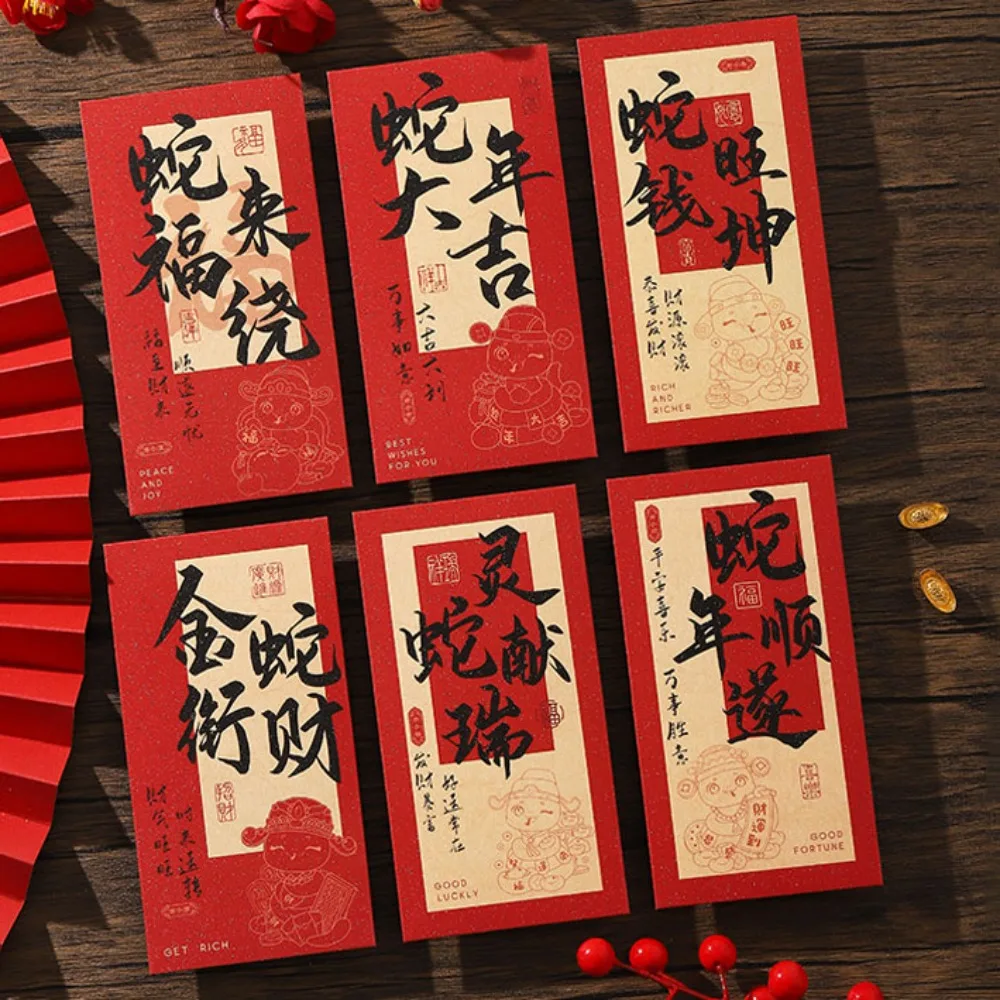 蛇来
福绕
福至财来
顺遂无忧
福
PEACE
AND
JOY
蛇年
大吉
万事如意
大吉大利
年大吉
BEST
WISHES
FOR YOU
蛇旺
钱坤
恭喜发财
财源滚滚
旺旺旺
RICH
AND
RICHER
金蛇
衔财
招财
财气旺旺
时来运转
GET RICH
灵蛇
献瑞
福
发财暴富
好运常在
GOOD
LUCKLY
蛇年
顺遂
福
平安喜乐
万事胜意
喜樂
财運到
GOOD
FORTUNE